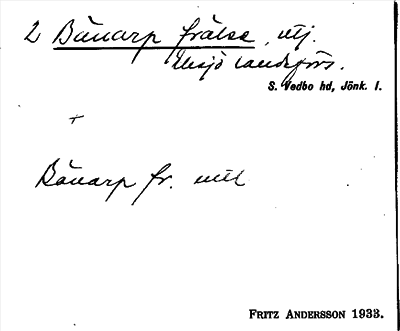 2 Bänarp frälse, utj.
Eksjö landsförs.
S. Vedbo hd, Jönk. l.
+
Bänarp fr. utl
FRITZ ANDERSSON 1933.